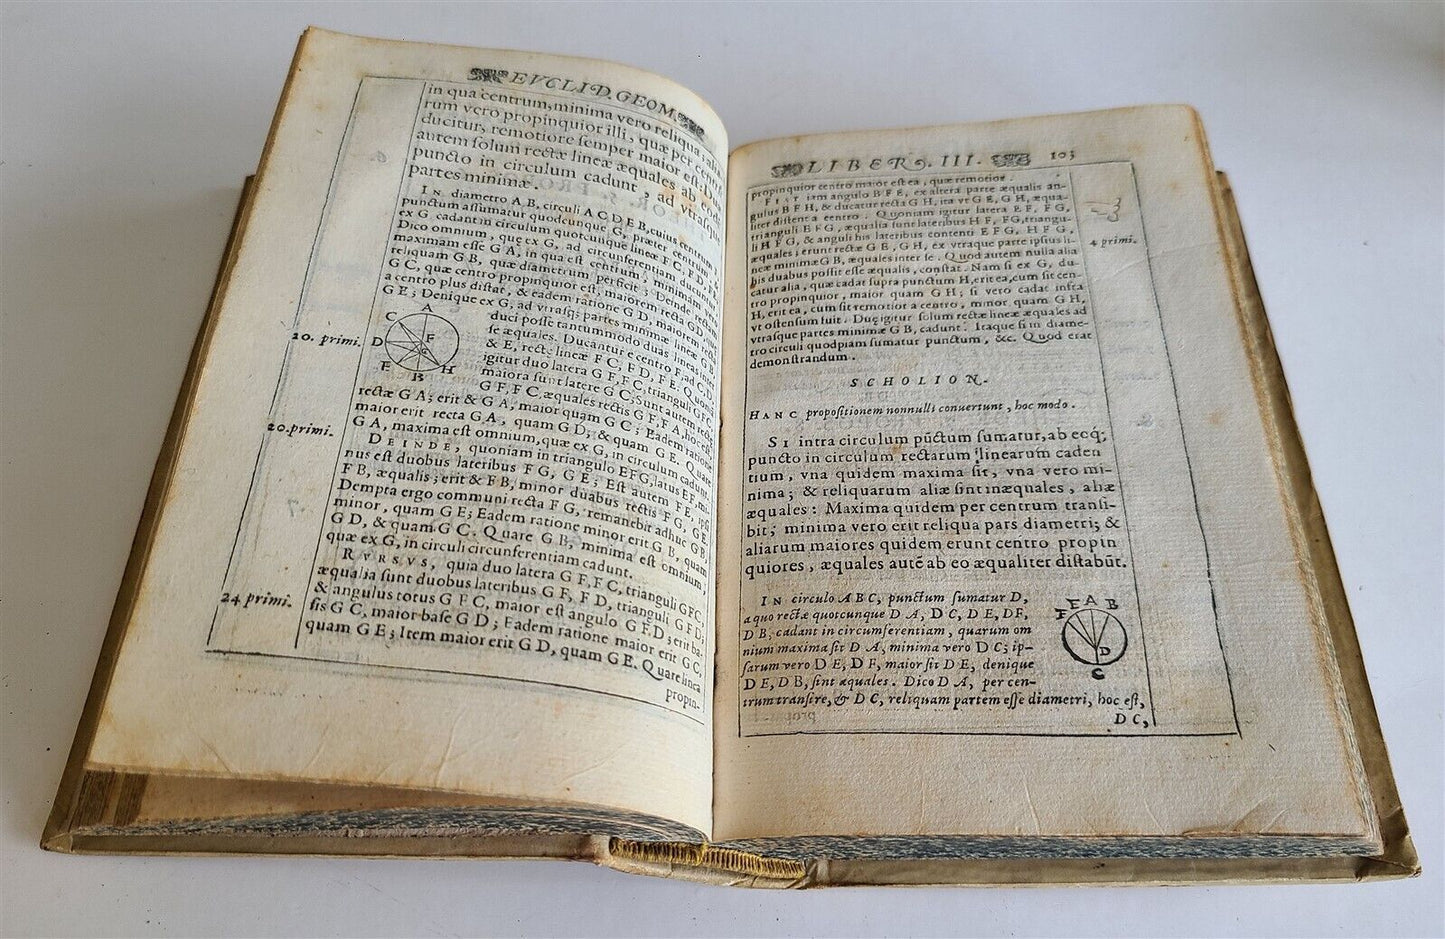 EVCLID. GEOM.
in qua centrum, minima vero reliqua; alia
rum vero propinquior illi, quæ per centrũ
ducitur, remotiore semper maior est: Duæ
autem solum rectæ lineæ æquales ab eodẽ
puncto in circulum cadunt, ad vtrasque
partes minimæ.
IN diametro A B, circuli A C D E B, cuius centrum F,
punctum assumatur quodcunque G, præter centrum,
ex G, cadant in circulum quotcunque lineæ
Dico omnium, quæ ex G, ad circunferentiam ducuntur
maximam esse G A, in qua est centrum; minimam vero
reliquam G B, quæ diametrum perficit; Deinde rectam
G C, quæ centro propinquior est, maiorem recta G D,
a centro plus distat, & eadem ratione G D, maiorem
G E; Denique ex G, ad vtrasq; partes minimæ lineæ G B
duci posse tantummodo duas lineas inter
se æquales. Ducantur e centro F, ad C, D,
& E, rectę lineæ F C, F D, F E. Quoniã
igitur duo latera G F, F C, trianguli G F C,
maiora sunt latere G C; Sunt autem rectæ
G F, F C, æquales rectis G F, F A, hoc est,
rectæ G A; erit & G A, maior quam G C; Eadem ratione
maior erit recta G A, quam G D, & quam G E. Quare
G A, maxima est omnium, quæ ex G, in circulum cadunt.
DEINDE, quoniam in triangulo E F G, latus E F, mi-
nus est duobus lateribus F G, G E; Est autem F E, ipsi
F B, æqualis; erit & F B, minor duabus rectis F G, G E.
Dempta ergo communi recta F G, remanebit adhuc G B,
minor, quam G E; Eadem ratione minor erit G B, quam
G D, & quam G C. Quare G B, minima est omnium,
quæ ex G, in circuli circunferentiam cadunt.
RVRSVS, quia duo latera G F, F C, trianguli G F C,
æqualia sunt duobus lateribus G F, F D, trianguli G F D;
& angulus totus G F C, maior est angulo G F D; erit ba-
sis G C, maior base G D; Eadem ratione maior erit G C,
quam G E; Item maior erit G D, quam G E. Quare linea
propin-
20. primi.
20. primi.
24 primi.
A
C
F
D
G
E
B
H
LIBER. III. 103
propinquior centro maior est ea, quæ remotior.
FIAT iam angulo B F E, ex altera parte æqualis an-
gulus B F H, & ducatur recta G H, ita vt G E, G H, æqua-
liter distent a centro. Quoniam igitur latera E F, F G,
trianguli E F G, æqualia sunt lateribus H F, F G, triangu-
li H F G, & anguli his lateribus contenti E F G, H F G,
æquales; erunt rectæ G E, G H, ex vtraque parte ipsius li-
neæ minimæ G B, æquales inter se. Quod autem nulla alia
his duabus possit esse æqualis, constat. Nam si ex G, du-
catur alia, quæ cadat supra punctum H, erit ea, cum sit cen-
tro propinquior, maior quam G H; si vero cadat infra
H, erit ea, cum sit remotior a centro, minor quam G H,
vt ostensum fuit. Duę igitur solum rectæ lineæ æquales ad
vtrasque partes minimæ G B, cadunt. Itaque si in diame-
tro circuli quodpiam sumatur punctum, &c. Quod erat
demonstrandum.
4 primi.
SCHOLION.
HANC propositionem nonnulli conuertunt, hoc modo.
SI intra circulum pũctum sumatur, ab eoq;
puncto in circulum rectarum linearum caden
tium, vna quidem maxima sit, vna vero mi-
nima; & reliquarum aliæ sint inæquales, aliæ
æquales: Maxima quidem per centrum transi-
bit; minima vero erit reliqua pars diametri; &
aliarum maiores quidem erunt centro propin
quiores, æquales autẽ ab eo æqualiter distabũt.
IN circulo ABC, punctum sumatur D,
a quo rectæ quotcunque D A, D C, D E, D F,
D B, cadant in circumferentiam, quarum om
nium maxima sit D A, minima vero D C; ip-
sarum vero D E, D F, maior sit D E, denique
D E, D B, sint æquales. Dico D A, per cen-
trum transire, & D C, reliquam partem esse diametri, hoc est,
D C,
F E A B
D
C